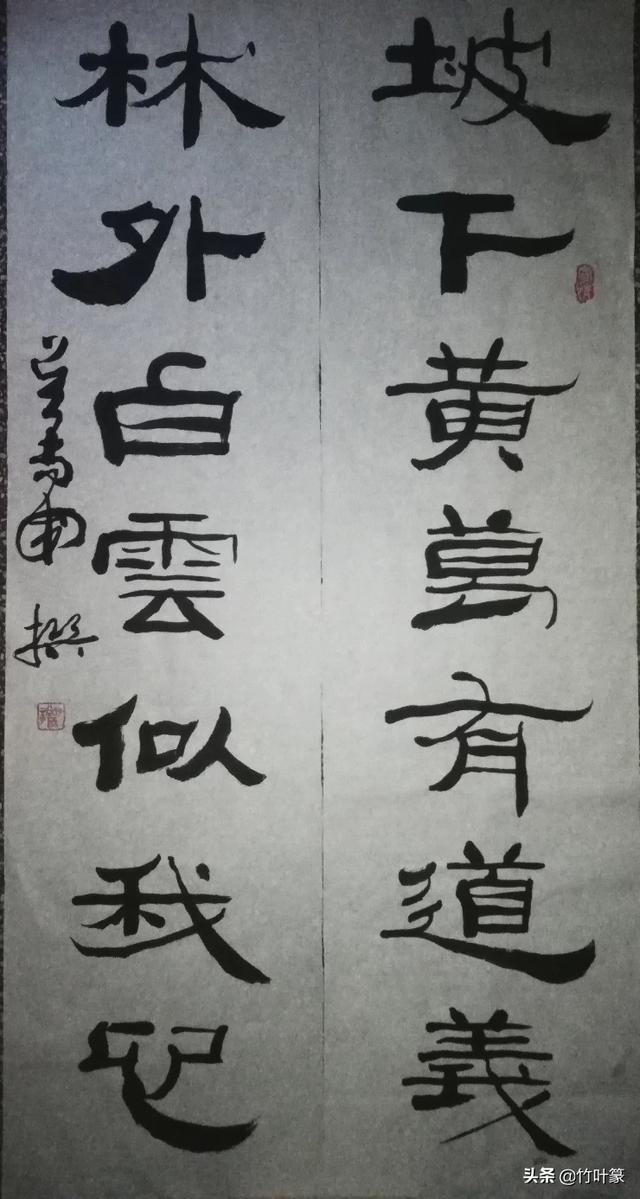 坡下黄葛有道義
林外白雲似我心
撰
头条 @竹叶篆